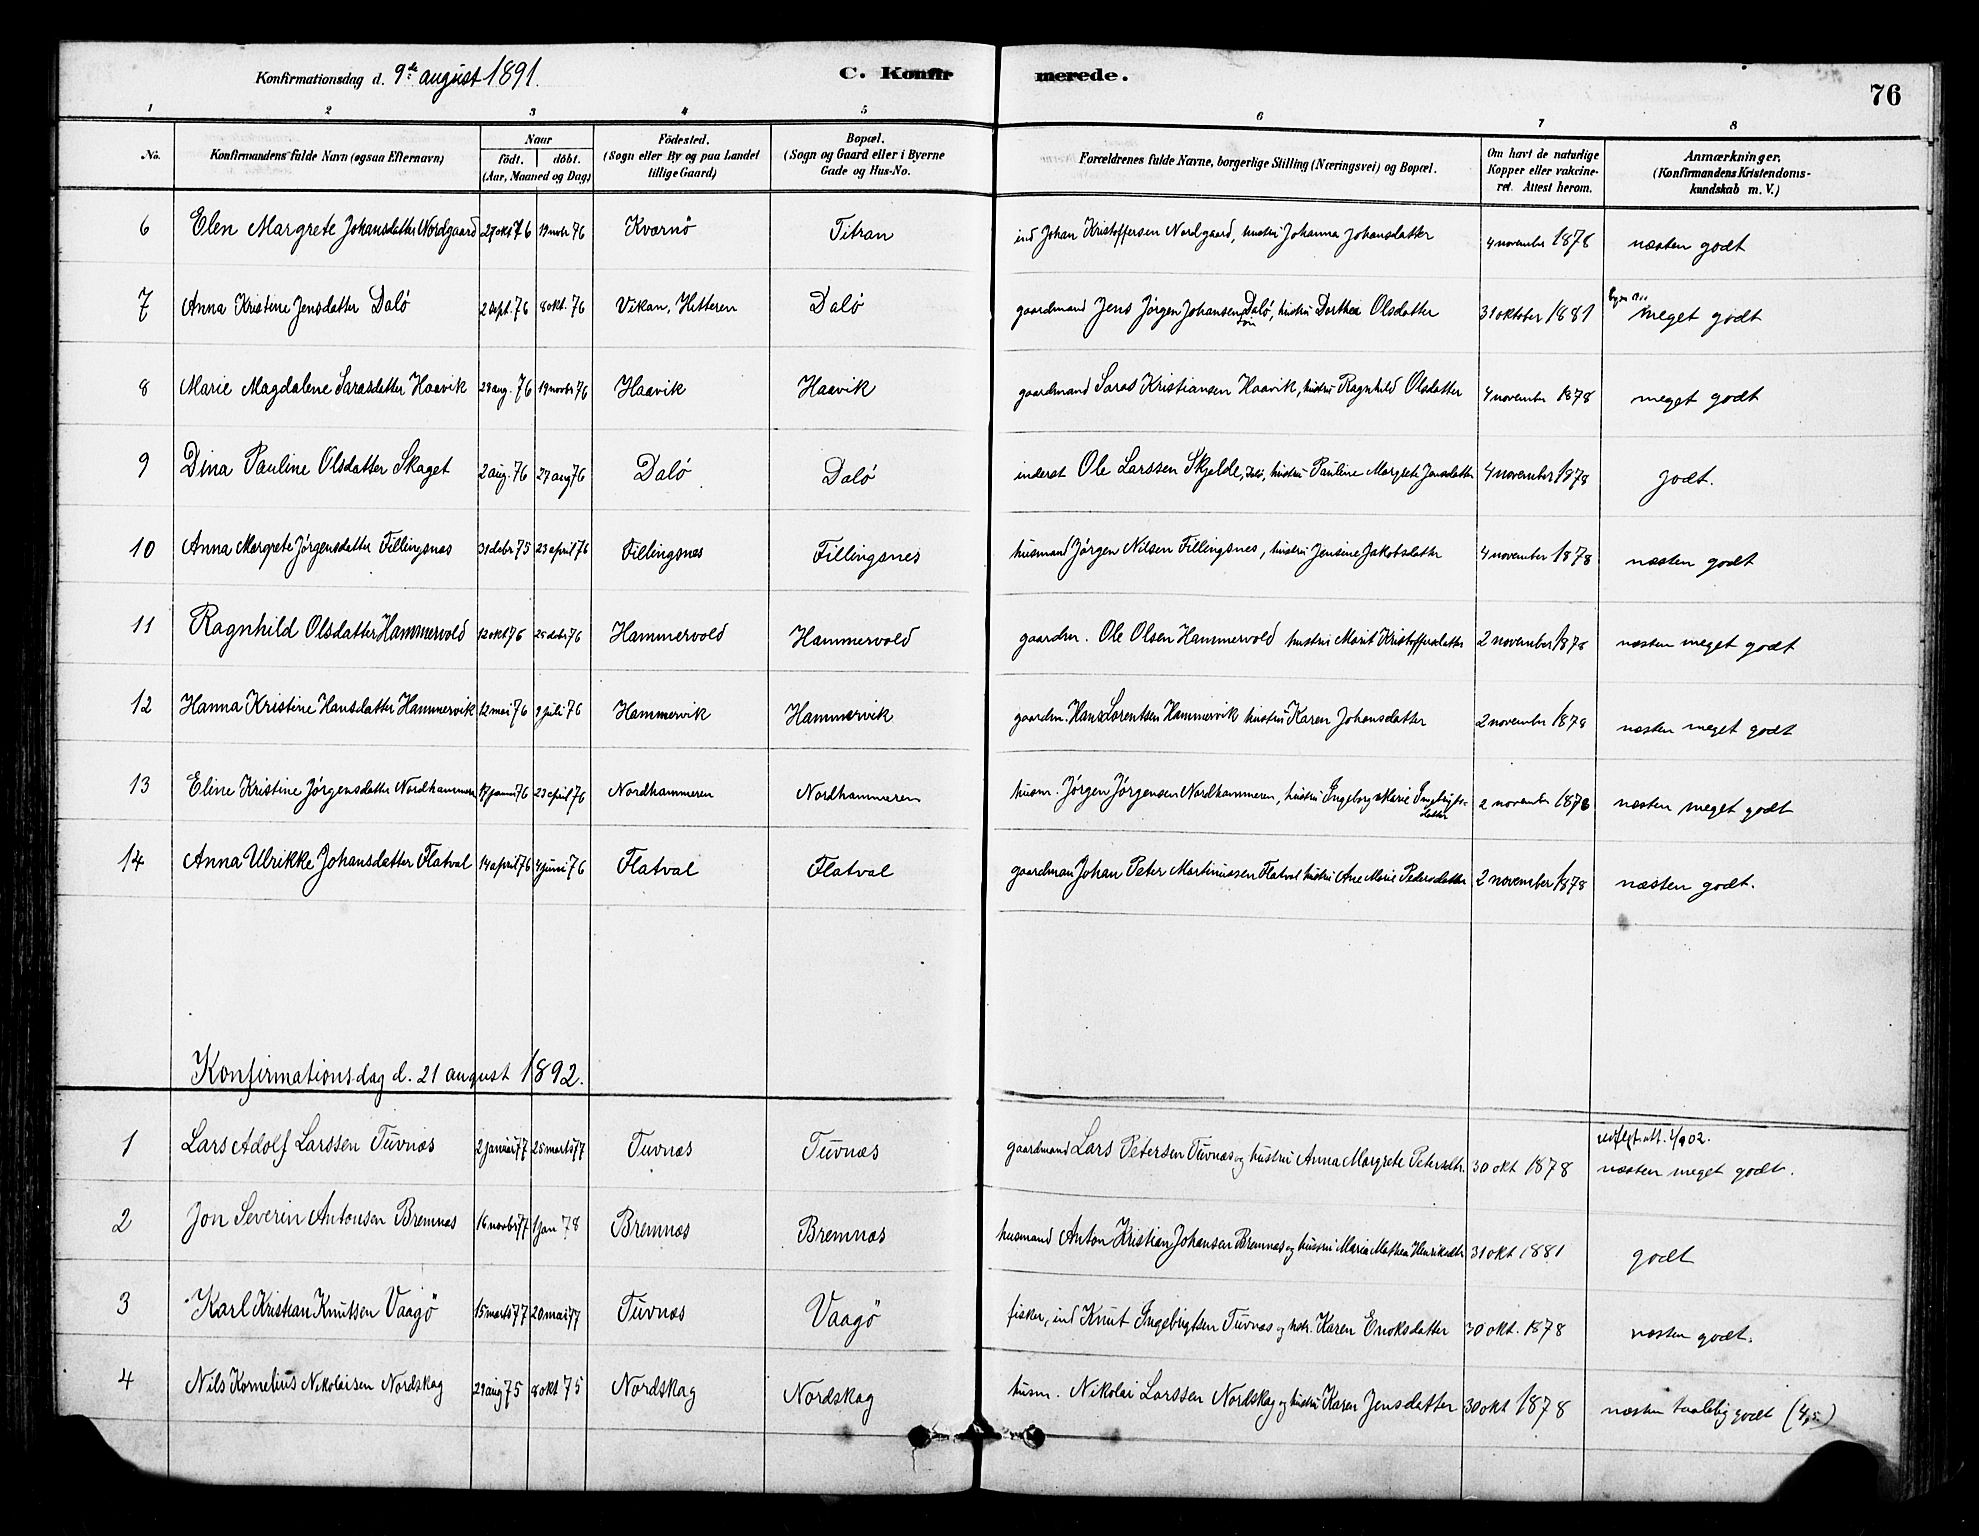 Konfirmationsdag d. 9de august 1891.
C. Konfirmerede.
76
1 2 3 4 5 6 7 8
No. Konfirmandens fulde Navn (ogsaa Efternavn) Naar födt. döbt. (Aar, Maaned og Dag) Födested. (Sogn eller By og paa Landet tillige Gaard) Bopæl. (Sogn og Gaard eller i Byerne Gade og Hus-No. Forældrenes fulde Navne, borgerlige Stilling (Næringsvei) og Bopæl. Om havt de naturlige Kopper eller vakcineret. Attest herom. Anmærkninger. (Konfirmandens Kristendomskundskab m. V.)
6 Elen Margrete Johansdatter Nordgaard 27 okt 76 19 novbr 76 Kværnö Titran ind Johan Kristoffersen Nordgaard, hustru Johanna Johansdatter 4 november 1878 næsten godt
7 Anna Kristine Jensdatter Dalö 2 sept. 76 8 okt. 76 Vikan, Hitteren Dalö gaardmand Jens Jörgen Johansen Dalö, hustru Dorthea Olsdatter 31 oktober 1881 meget godt
8 Marie Magdalene Sarasdatter Haavik 29 aug. 76 19 novbr 76 Haavik Haavik gaardmand Saras Kristiansen Haavik, hustru Ragnhild Olsdatter 4 november 1878 meget godt
9 Dina Pauline Olsdatter Skaget 2 aug. 76 27 aug 76 Dalö Dalö inderst Ole Larssen Skjelde, hustru Pauline Margrete Jensdatter 4 november 1878 godt.
10 Anna Margrete Jörgensdatter Fillingsnæs 31 debr 75 23 april 76 Fillingsnes Fillingsnes husmand Jörgen Nilsen Fillingsnes, hustru Jensine Jakobsdatter 4 november 1878 næsten godt
11 Ragnhild Olsdatter Hammervold 12 okt 76 26 debr 76 Hammervold Hammervold gaardm. Ole Olsen Hammervold hustru Marit Kristoffersdatter 2 november 1878 næsten meget godt
12 Hanna Kristine Hansdatter Hammervik 12 mai 76 9 juli 76 Hammervik Hammervik gaardm. Hans Lorentsen Hammervik hustru Karen Johansdatter 2 november 1878 næsten meget godt
13 Eline Kristine Jörgensdatter Nordhammeren 17 januar 76 23 april 76 Nordhammeren Nordhammeren husm. Jörgen Jörgensen Nordhammeren, hustru Ingeborg Marie Ingebrigtsdatter 2 november 1878 næsten meget godt
14 Anna Ulrikke Johansdatter Flatval 14 april 76 4 juni 76 Flatval Flatval gaardman Johan Peter Martinussen Flatval hustru Ane Marie Pedersdatter 2 november 1878 næsten godt.
Konfirmationsdag d. 21 august 1892.
1 Lars Adolf Larssen Tuvnæs 2 januar 77 25 marts 77 Tuvnæs Tuvnæs gaardmand Lars Petersen Tuvnæs og hustru Anna Margrete Petersdtr. 30 okt 1878 næsten meget godt.
2 Jon Severin Antonsen Bremnæs 16 novbr 77 1 jan 78 Bremnæs Bremnæs husmand Anton Kristian Johansen Bremnæs og hustru Maria Mathea Henriksdtr 31 okt 1881 godt
3 Karl Kristian Knutsen Vaagö 15 marts 77 20 mai 77 Tuvnæs Vaagö fisker, ind Knut Ingebrigtsen Tuvnæs og hstr. Karen Enoksdatter 30 okt. 1878 næsten godt.
4 Nils Kornelius Nikolaisen Nordskag 29 aug 75 8 okt 75 Nordskag Nordskag husm. Nikolai Larssen Nordskag og hustru Karen Jensdatter 30 okt 1878 næsten taalelig godt (4,5)